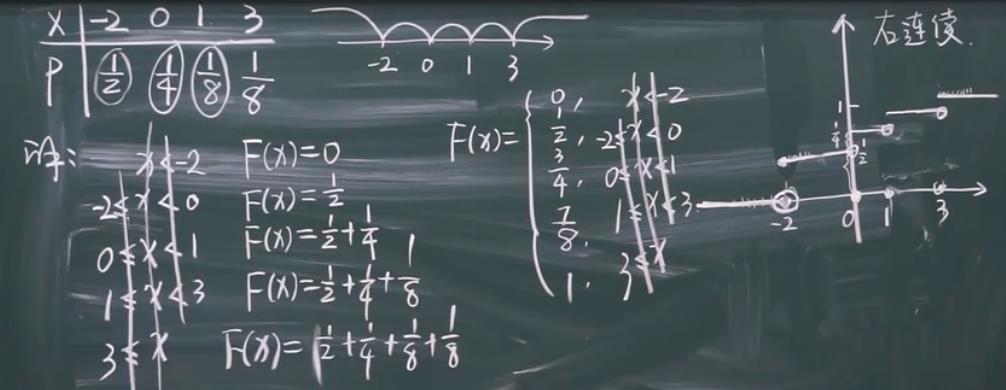 X -2 0 1 3
P 1/2 1/4 1/8 1/8
-2 0 1 3
解:
x<-2 F(x)=0
-2≤x<0 F(x)=1/2
0≤x<1 F(x)=1/2+1/4
1≤x<3 F(x)=1/2+1/4+1/8
3≤x F(x)=1/2+1/4+1/8+1/8
F(x)=
0, x<-2
1/2, -2≤x<0
3/4, 0≤x<1
7/8, 1≤x<3
1. 3≤x
右连续.
1
1/4
1/2
-2 0 1 3